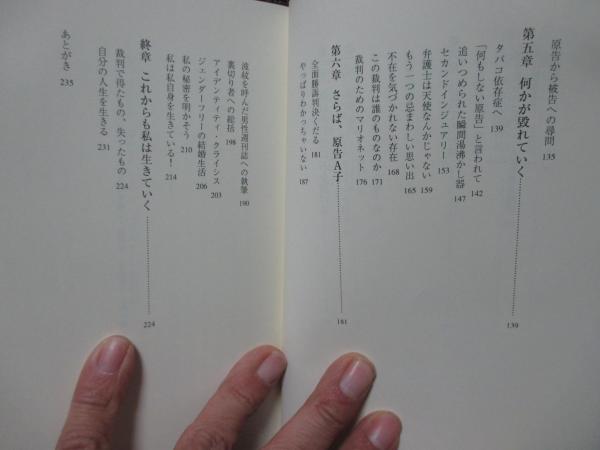 原告から被告への尋問 135
第五章 何かが毀れていく 139
タバコ依存症へ 139
「何もしない原告」と言われて 142
追いつめられた瞬間湯沸かし器 147
セカンドインジュアリー 153
弁護士は天使なんかじゃない 159
もう一つの忌まわしい思い出 165
不在を気づかれない存在 168
この裁判は誰のものなのか 171
裁判のためのマリオネット 176
第六章 さらば、原告A子 181
全面勝訴判決くだる 181
やっぱりわかっちゃいない 187
波紋を呼んだ男性週刊誌への執筆 190
裏切り者への総括 198
アイデンティティ・クライシス 203
ジェンダーフリーの結婚生活 206
私の秘密を明かそう 210
私は私自身を生きている! 214
終章 これからも私は生きていく 224
裁判で得たもの、失ったもの 224
自分の人生を生きる 231
あとがき 235